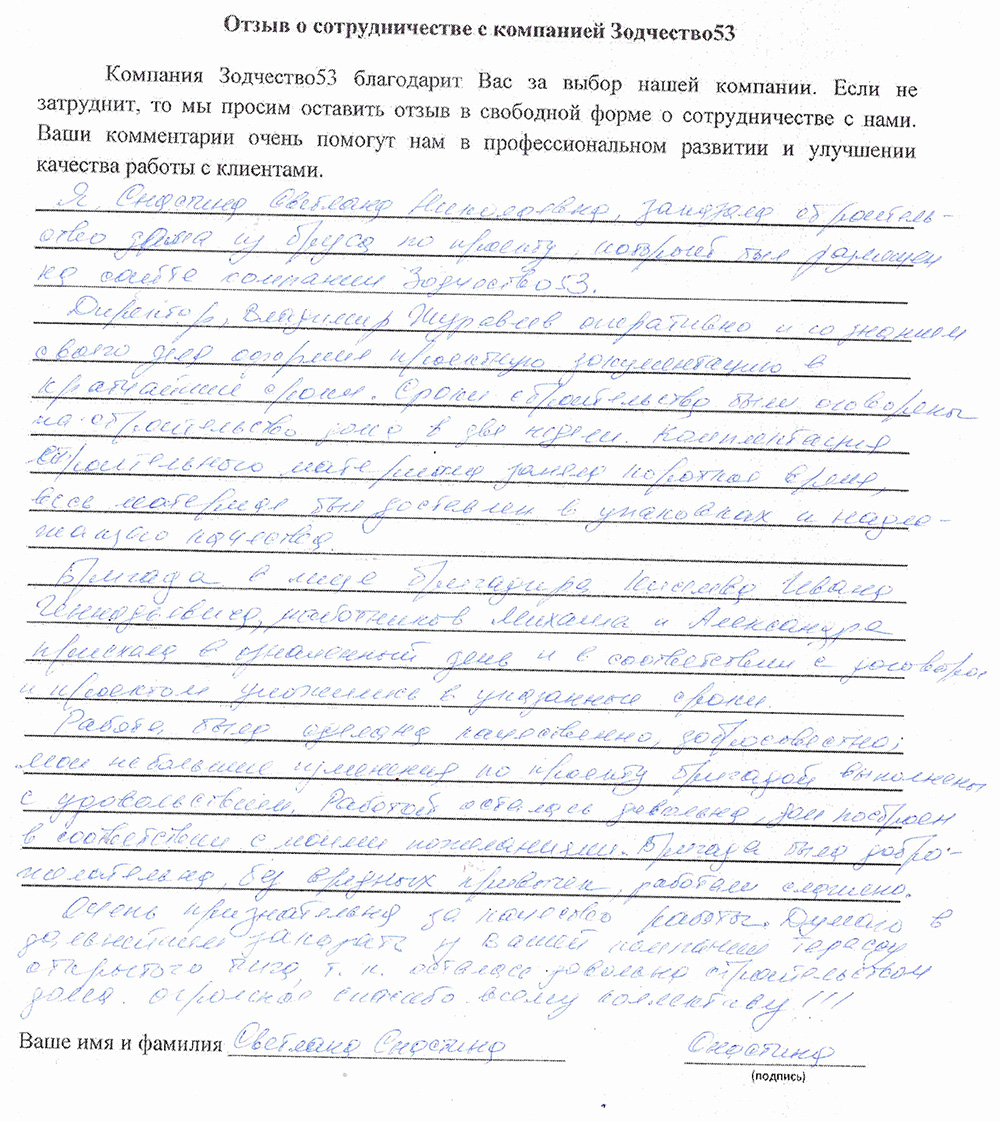 Отзыв о сотрудничестве с компанией Зодчество53
Компания Зодчество53 благодарит Вас за выбор нашей компании. Если не
затруднит, то мы просим оставить отзыв в свободной форме о сотрудничестве с нами.
Ваши комментарии очень помогут нам в профессиональном развитии и улучшении
качества работы с клиентами.
Я, Снастина Светлана Николаевна, заказала строитель-
ство дома из бруса по проекту, который был размещен
на сайте компании Зодчество53.
Директор, Владимир Журавлев оперативно и со знанием
своего дела оформил проектную документацию в
кратчайшие сроки. Сроки строительства были оговорены
на строительство дома в две недели. Комплектация
строительного материала заняла короткое время,
весь материал был доставлен в упаковках и надле-
жащего качества.
Бригада в лице бригадира Ивана
Геннадьевича, работников Михаила и Александра
приехала в означенный день и в соответствии с договором
и проектом уложились в указанные сроки.
Работа была сделана качественно, добросовестно,
мои небольшие изменения по проекту бригадой выполнены
с удовольствием. Работой осталась довольна, дом построен
в соответствии с моими пожеланиями. Бригада была добро-
желательна, без вредных привычек, работали слаженно.
Очень признательна за качество работы. Думаю в
дальнейшем заказать у Вашей компании террасу
открытого типа, т. к. осталась довольна строительством
дома. огромное спасибо всему коллективу!!!
Ваше имя и фамилия Светлана Снастина Снастина
(подпись)